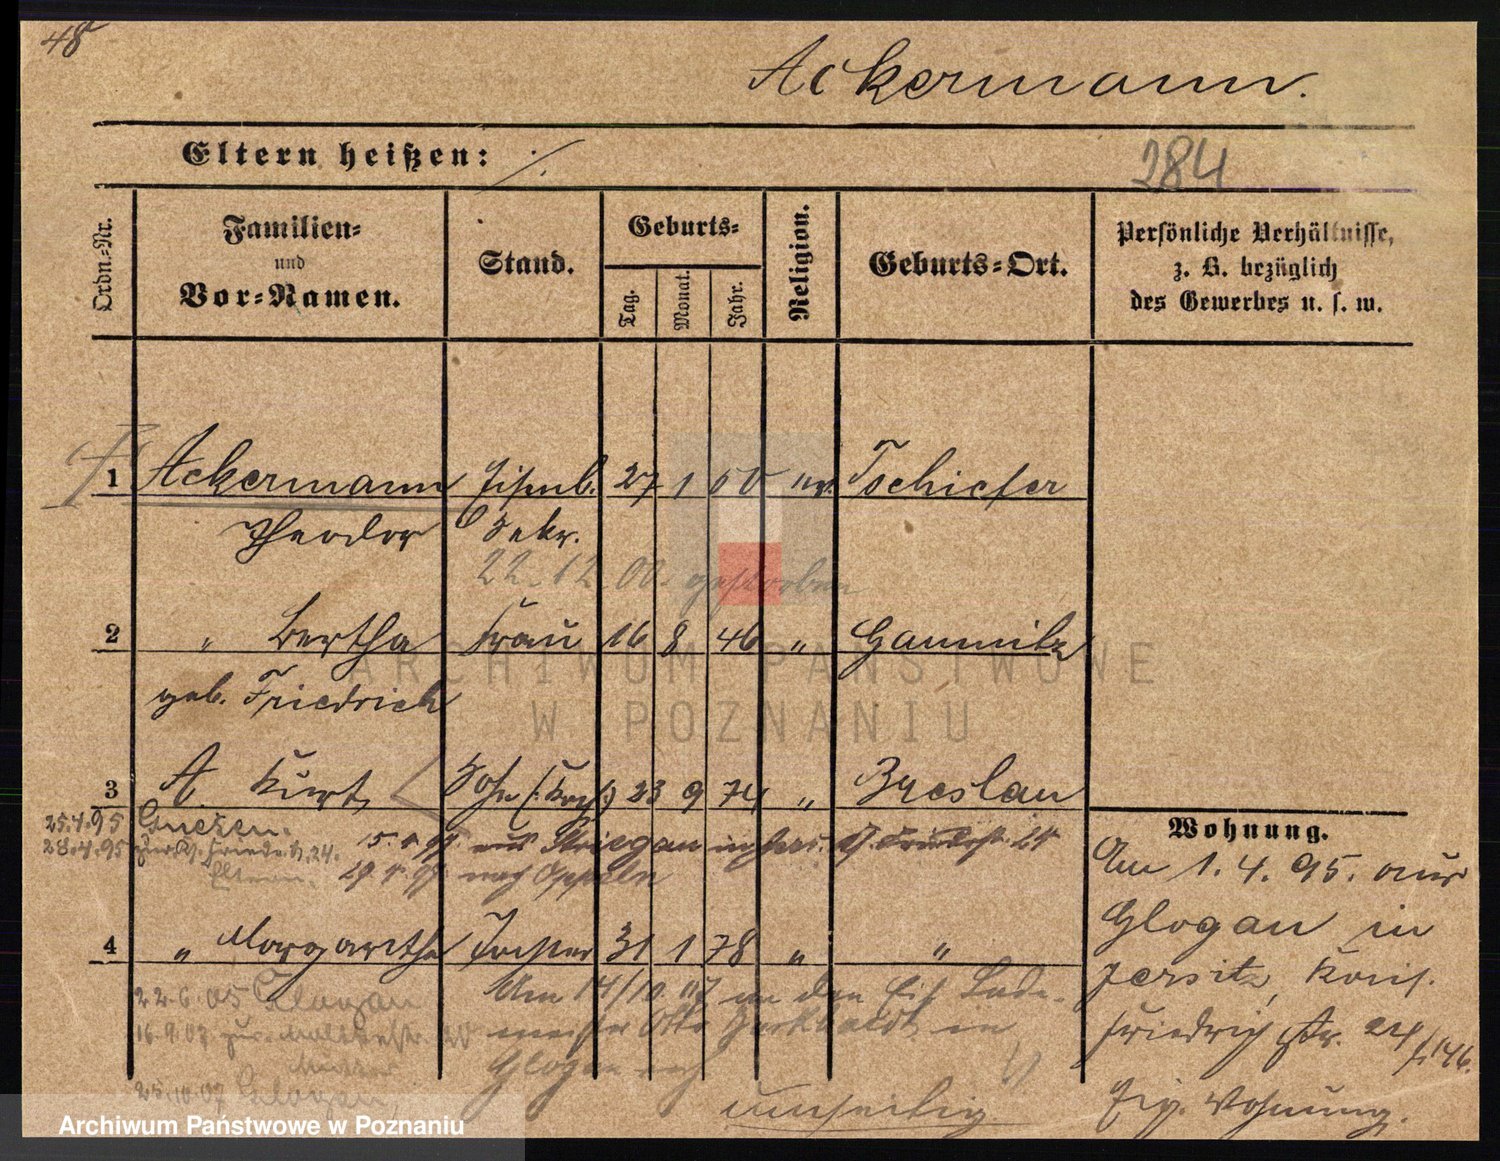 48
Ackermann.
Eltern heißen: ./.
284
Ordn.-Nr.
Familien-
und
Vor-Namen.
Stand.
Geburts-
Tag.
Monat.
Jahr.
Religion.
Geburts-Ort.
Persönliche Verhältnisse,
z. B. bezüglich
des Gewerbes u. s. w.
1 Ackermann Eisenb. 27 1 50 ev. Tschiefer
Theodor Sekr.
22.12.00. gestorben
2 " Bertha Frau 16 8 46 " Gaumitz
geb. Friedrich
3 A. Kurt Sohn 23 9 74 " Breslau
25.4.95 Gnesen.
28.4.95 24.
Eltern.
15. aus Striegau
29. nach Oppeln
4 " Margarethe Tochter 31 1 78 " "
22.6.05 Glogau
16.9.07 zur Moltkestr. 20
Mutter
25.10.07 Glogau
Am 14/10. 07 an den
meister Otto Burkhardt in
Glogau
umseitig.
Wohnung.
Am 1.4.95. aus
Glogau in
Jersitz, Kais.
Friedrich Str. 24
Eig. Wohnung.
ARCHIWUM PAŃSTWOWE
W POZNANIU
Archiwum Państwowe w Poznaniu